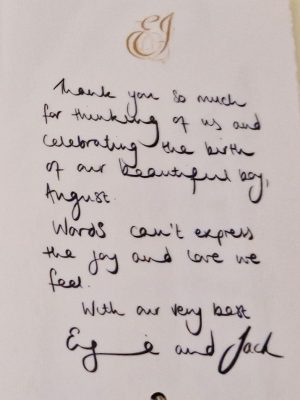 EJ
Thank you so much
for thinking of us and
celebrating the birth
of our beautiful boy,
August.
Words can't express
the joy and love we
feel.
With our very best
Eugenie and Jack